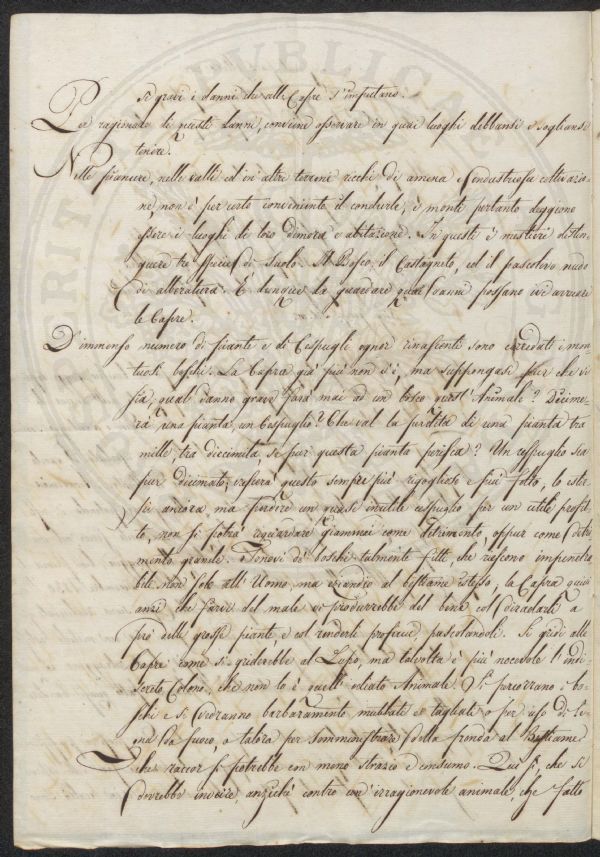 sì gravi i danni che alle Capre s'imputano.
Per ragionare di questi danni, conviene osservare in quai luoghi debbansi e sogliansi
tenere.
Nelle pianure, nelle valli ed in altri terreni ricchi di amena e industriosa coltivazio-
ne, non è per certo conveniente il condurle, i monti pertanto deggiono
essere i luoghi di loro dimora e abitazione. In questi è mestieri distin-
guere tre specie di suolo. Il Bosco, il Castagneto, ed il pascolivo nudo
di alberatura. È dunque da guardare quai danni possano ivi arrecare
le Capre.
D'immenso numero di piante e di Cespugli ognor rinascenti sono corredati i mon-
tuosi boschi. La Capra già più non v'è, ma suppongasi pur che vi
sia, qual danno grave farà mai ad un bosco quest'Animale? Decime-
rà una pianta, un Cespuglio? Che val la perdita di una pianta tra
mille, tra diecimila se pur questa pianta perisca? Un cespuglio sia
pur decimato, risorgerà questo sempre più rigoglioso e più folto, lo ister-
pi ancora, ma perdere un quasi inutile cespuglio per un utile profit-
to, non si potrà riguardare giammai come detrimento, oppur come detri-
mento grande. Sonovi de' boschi talmente fitti, che riescono impenetra-
bili non solo all'Uomo, ma eziandio al bestiame istesso, la Capra quivi
anzi che farvi del male vi produrrebbe del bene col diradarli a
prò delle grosse piante, e col renderli proficui, pascolandoli. Si gridi alle
Capre come si griderebbe al Lupo, ma talvolta è più nocevole l'indi-
screto Colono, che non lo è quell'odiato Animale. Si percorrano i bo-
schi e si vedranno barbaramente mutilati e tagliati o per uso di le-
gna da fuoco, o talora per somministrare della fronda al Bestiame
che raccor si potrebbe con meno strazio e consumo. Qui sì, che si
dovrebbe inveire, anziché contro un irragionevole animale, che fallo